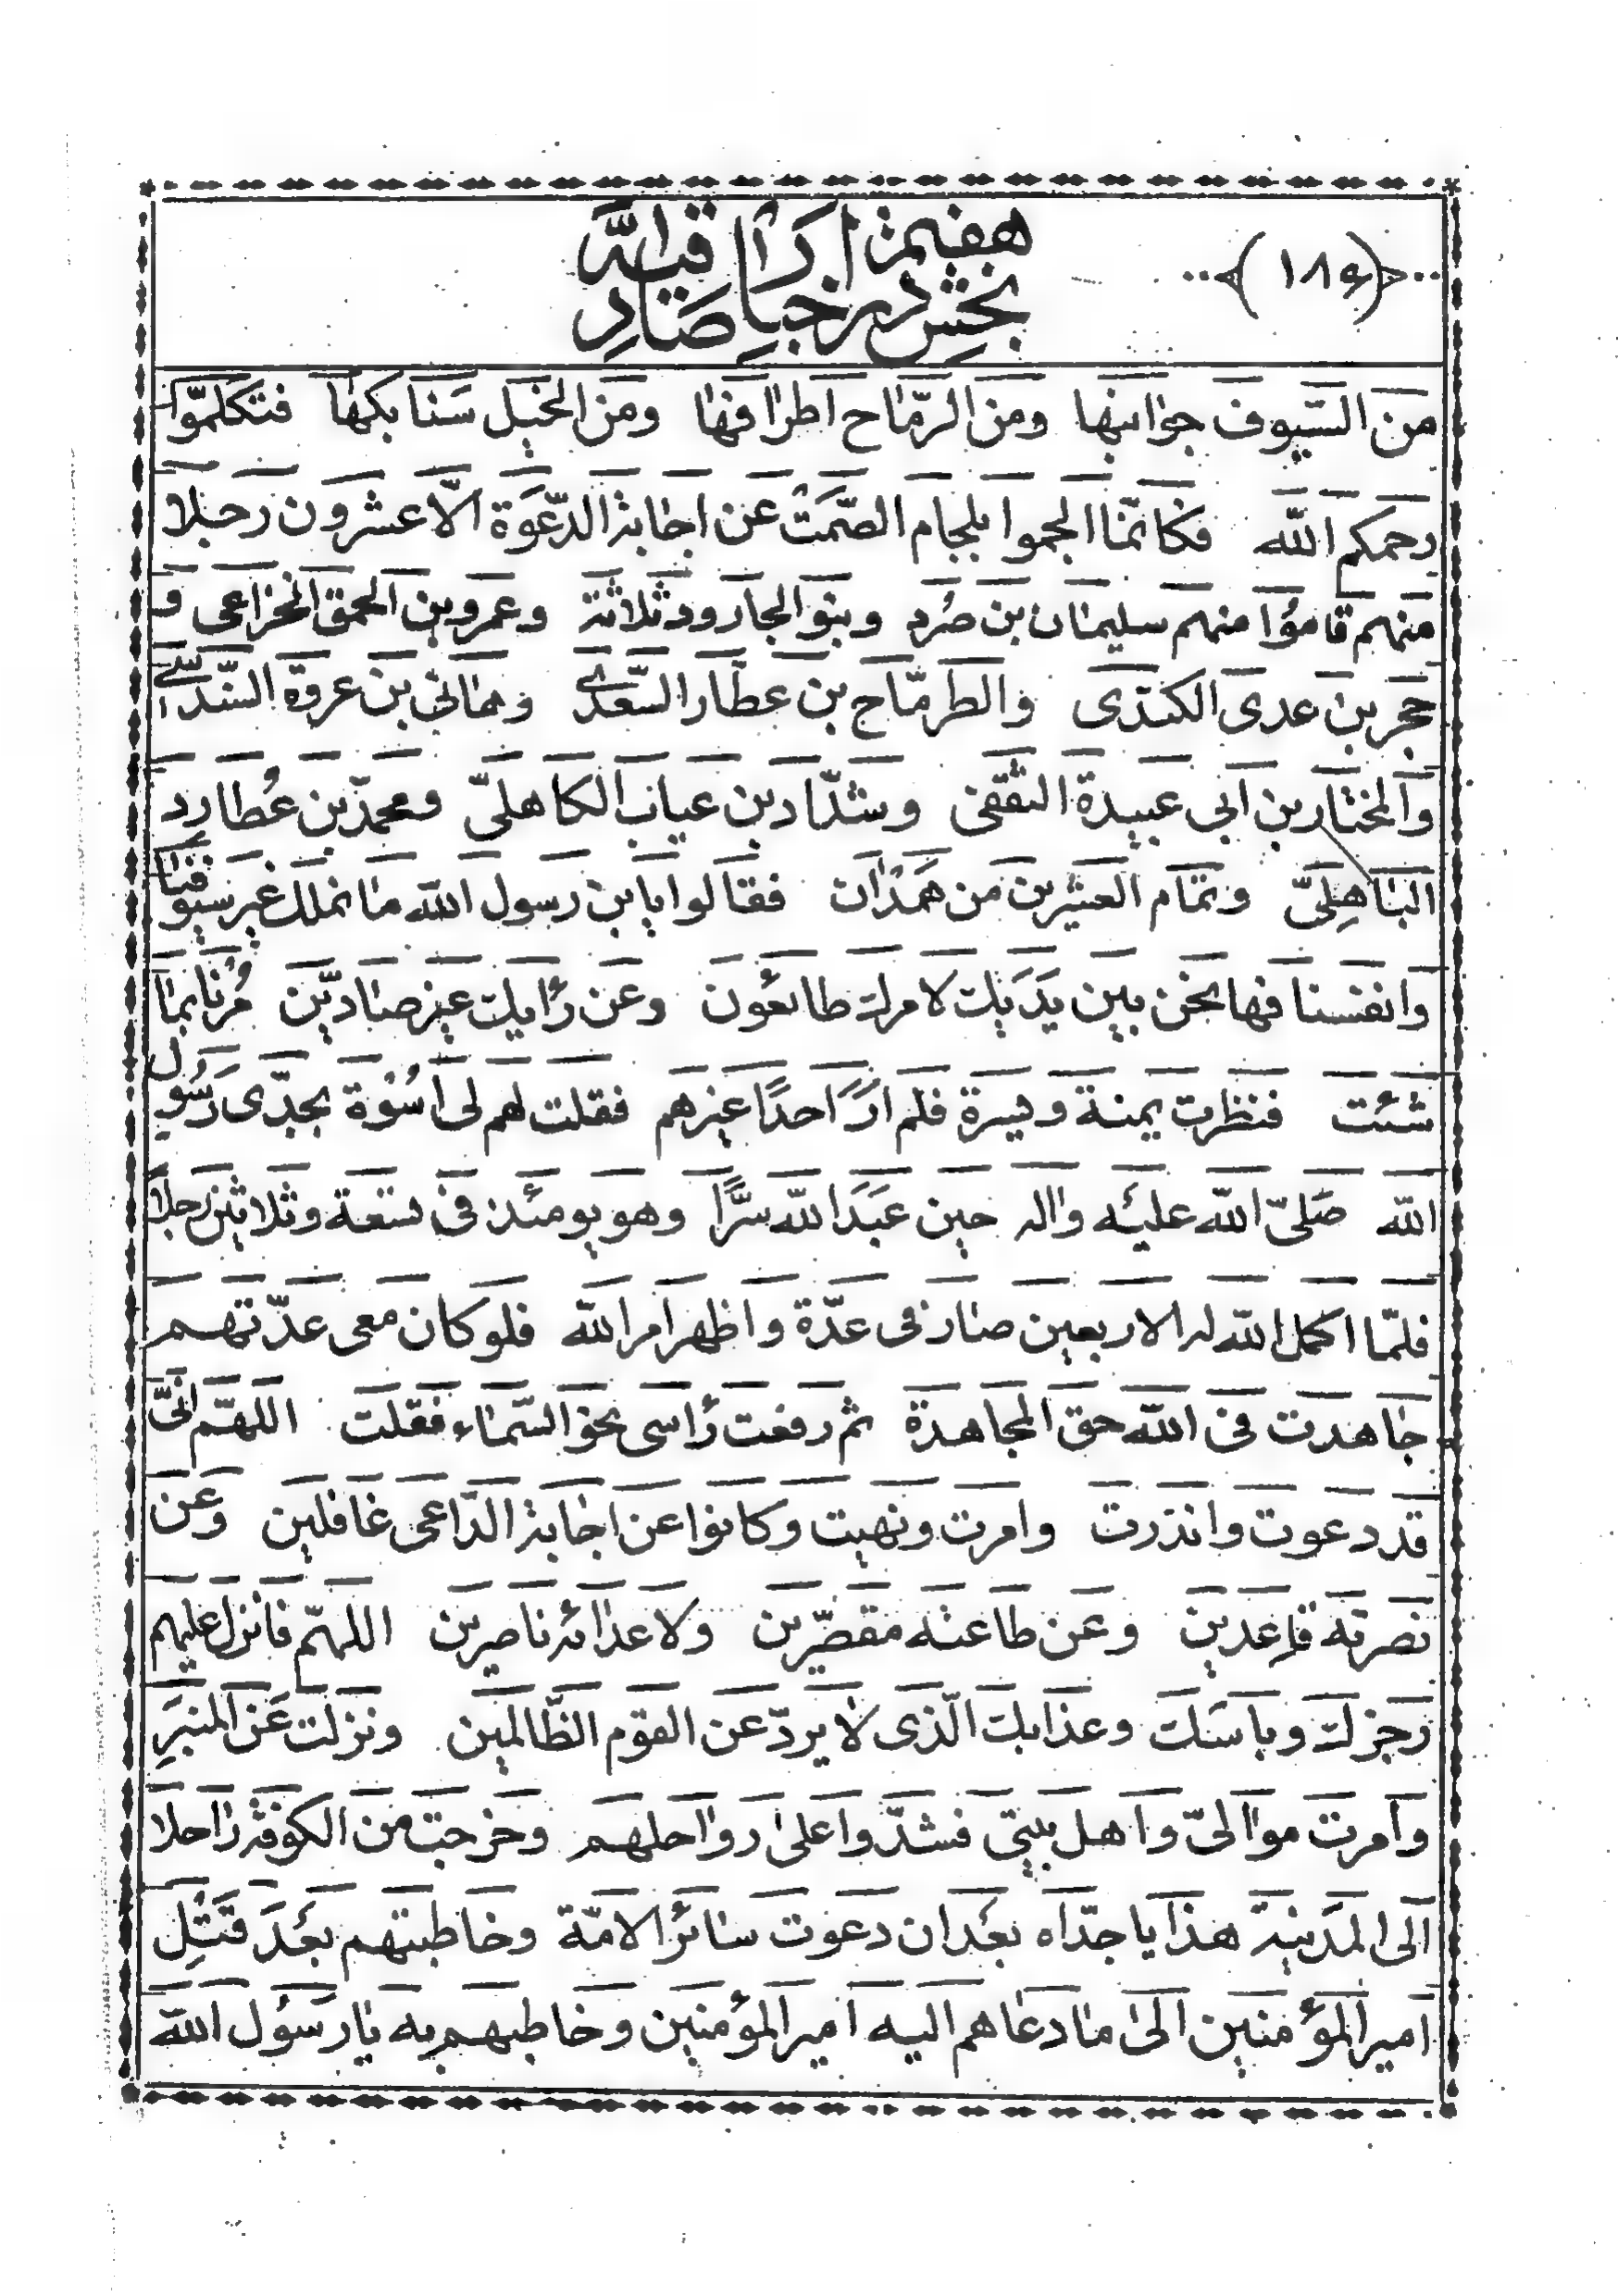 ﴿١٨٦﴾
بخش هفتمین در اخبار صادقیه
من السّيوف جوانبها ومن الرّماح اطرافها ومن الخيل سنابكها فتكلّموا
رحمكم اللّه فكانّما الجموا بلجام الصّمت عن اجابة الدّعوة الّا عشرون رجلا
منهم قاموا منهم سليمان بن صُرد وبنو الجارود ثلاثة وعمرو بن الحمق الخزاعى و
حجر بن عدى الكندى والطرمّاح بن عطار السّعدى وهانى بن عروة السّندّى
والمختار بن ابى عبيدة الثقفى وشدّاد بن عياب الكاهلىّ ومحمّد بن عُطارد
الباهِلىّ وتمام العشرين من همدان فقالوا يابن رسول اللّه ما نملك غير سيوفنا
وانفسنا فها نحن بين يديك لامرك طائعون وعن رأيك غير صادّين مُرنا بما
شئت فنظرت يمنة ويسرة فلم ار احدًا غيرهم فقلت لهم لى اُسْوة بجدّى رسول
اللّه صَلىّ اللّه عليه واله حين عَبَدَ اللّه سرًّا وهو يومئذ فى تسعة وثلاثين رجلا
فلمّا اكمل اللّه له الاربعين صار فى عدّة واظهر امر اللّه فلو كان معى عدّتهم
جاهدت فى اللّه حق المجاهدة ثم رفعت رأسى نحو السّماء فقلت اللهمّ انّى
قد دعوت وانذرت وامرت ونهيت وكانوا عن اجابة الدّاعى غافلين وعن
نصرته قاعدين وعن طاعته مقصّرين ولاعدائه ناصرين اللهمّ فانزل عليهم
رجزك وباسك وعذابك الّذى لا يردّ عن القوم الظّالمين ونزلت عن المنبرِ
وامرت موالىّ واهل بيتى فشدّوا على رواحلهم وخرجت من الكوفة راحلا
الى المدينة هذا يا جدّاه بعد ان دعوت سائر الامّة وخاطبتهم بعد قتلِ
امير المؤمنين الى ما دعاهم اليه امير المؤمنين وخاطبهم به يا رسول اللّه